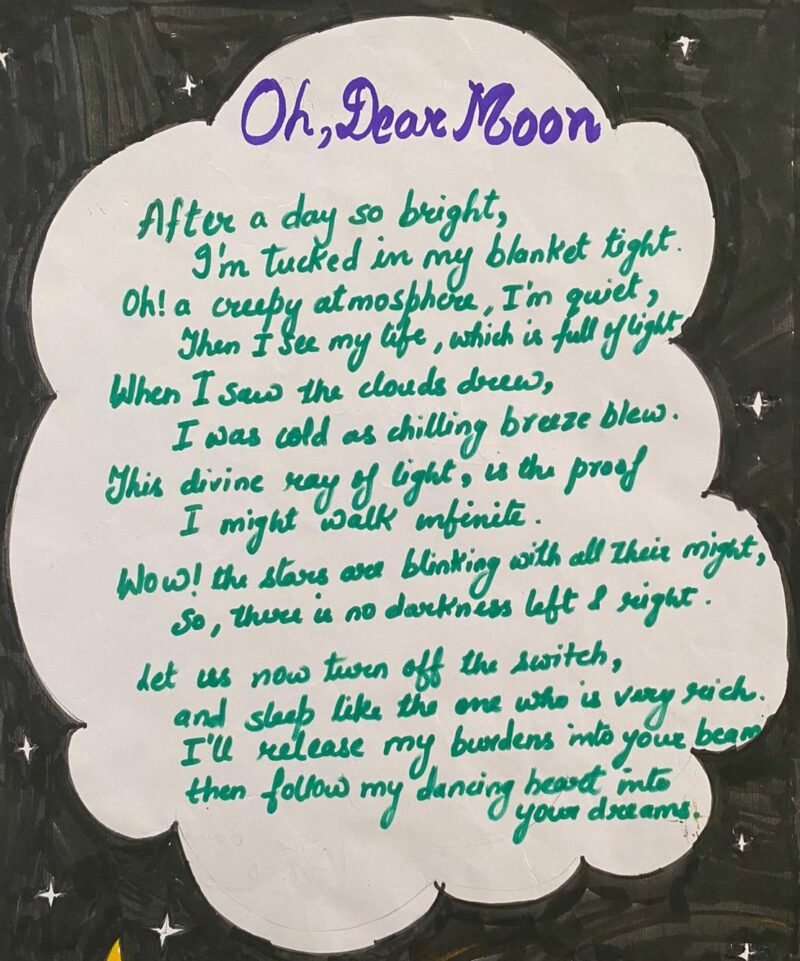 Oh, Dear Moon
After a day so bright,
I'm tucked in my blanket tight.
Oh! a creepy atmosphere, I'm quiet,
Then I see my life, which is full of light
When I saw the clouds drew,
I was cold as chilling breeze blew.
This divine ray of light, is the proof
I might walk infinite.
Wow! the stars are blinking with all their might,
So, there is no darkness left & right.
Let us now turn off the switch,
and sleep like the one who is very rich.
I'll release my burdens into your beam
then follow my dancing heart into
your dreams.